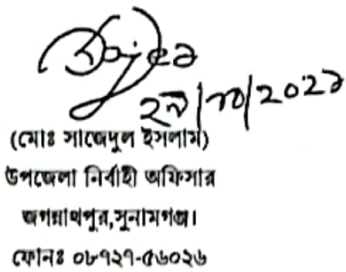 (মোঃ সাজেদুল ইসলাম)
উপজেলা নির্বাহী অফিসার
জগন্নাথপুর,সুনামগঞ্জ।
ফোনঃ ০৮৭২৭-৫৬০২৬